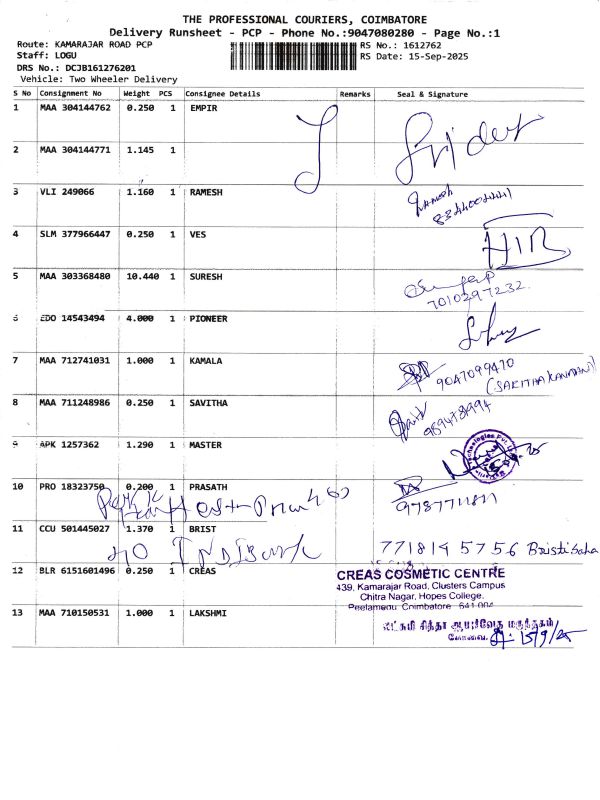 THE PROFESSIONAL COURIERS, COIMBATORE
Delivery Runsheet - PCP - Phone No.:9047080280 - Page No.:1
Route: KAMARAJAR ROAD PCP
RS No.: 1612762
Staff: LOGU
RS Date: 15-Sep-2025
DRS No.: DCJB161276201
Vehicle: Two Wheeler Delivery
S No Consignment No Weight PCS Consignee Details Remarks Seal & Signature
1 MAA 304144762 0.250 1 EMPIR
2 MAA 304144771 1.145 1
3 VLI 249066 1.160 1 RAMESH
Ramesh
4 SLM 377966447 0.250 1 VES
5 MAA 303368480 10.440 1 SURESH
7010297232
6 EDO 14543494 4.000 1 PIONEER
7 MAA 712741031 1.000 1 KAMALA
9047099470
8 MAA 711248986 0.250 1 SAVITHA
9 APK 1257362 1.290 1 MASTER
10 PRO 18323750 0.200 1 PRASATH
11 CCU 501445027 1.370 1 BRIST
7718145756 Bristi Saha
12 BLR 6151601496 0.250 1 CREAS
CREAS COSMETIC CENTRE
439, Kamarajar Road, Clusters Campus
Chitra Nagar, Hopes College.
Peelamedu, Coimbatore - 641 004
13 MAA 710150531 1.000 1 LAKSHMI
கோவை.
15/9/25